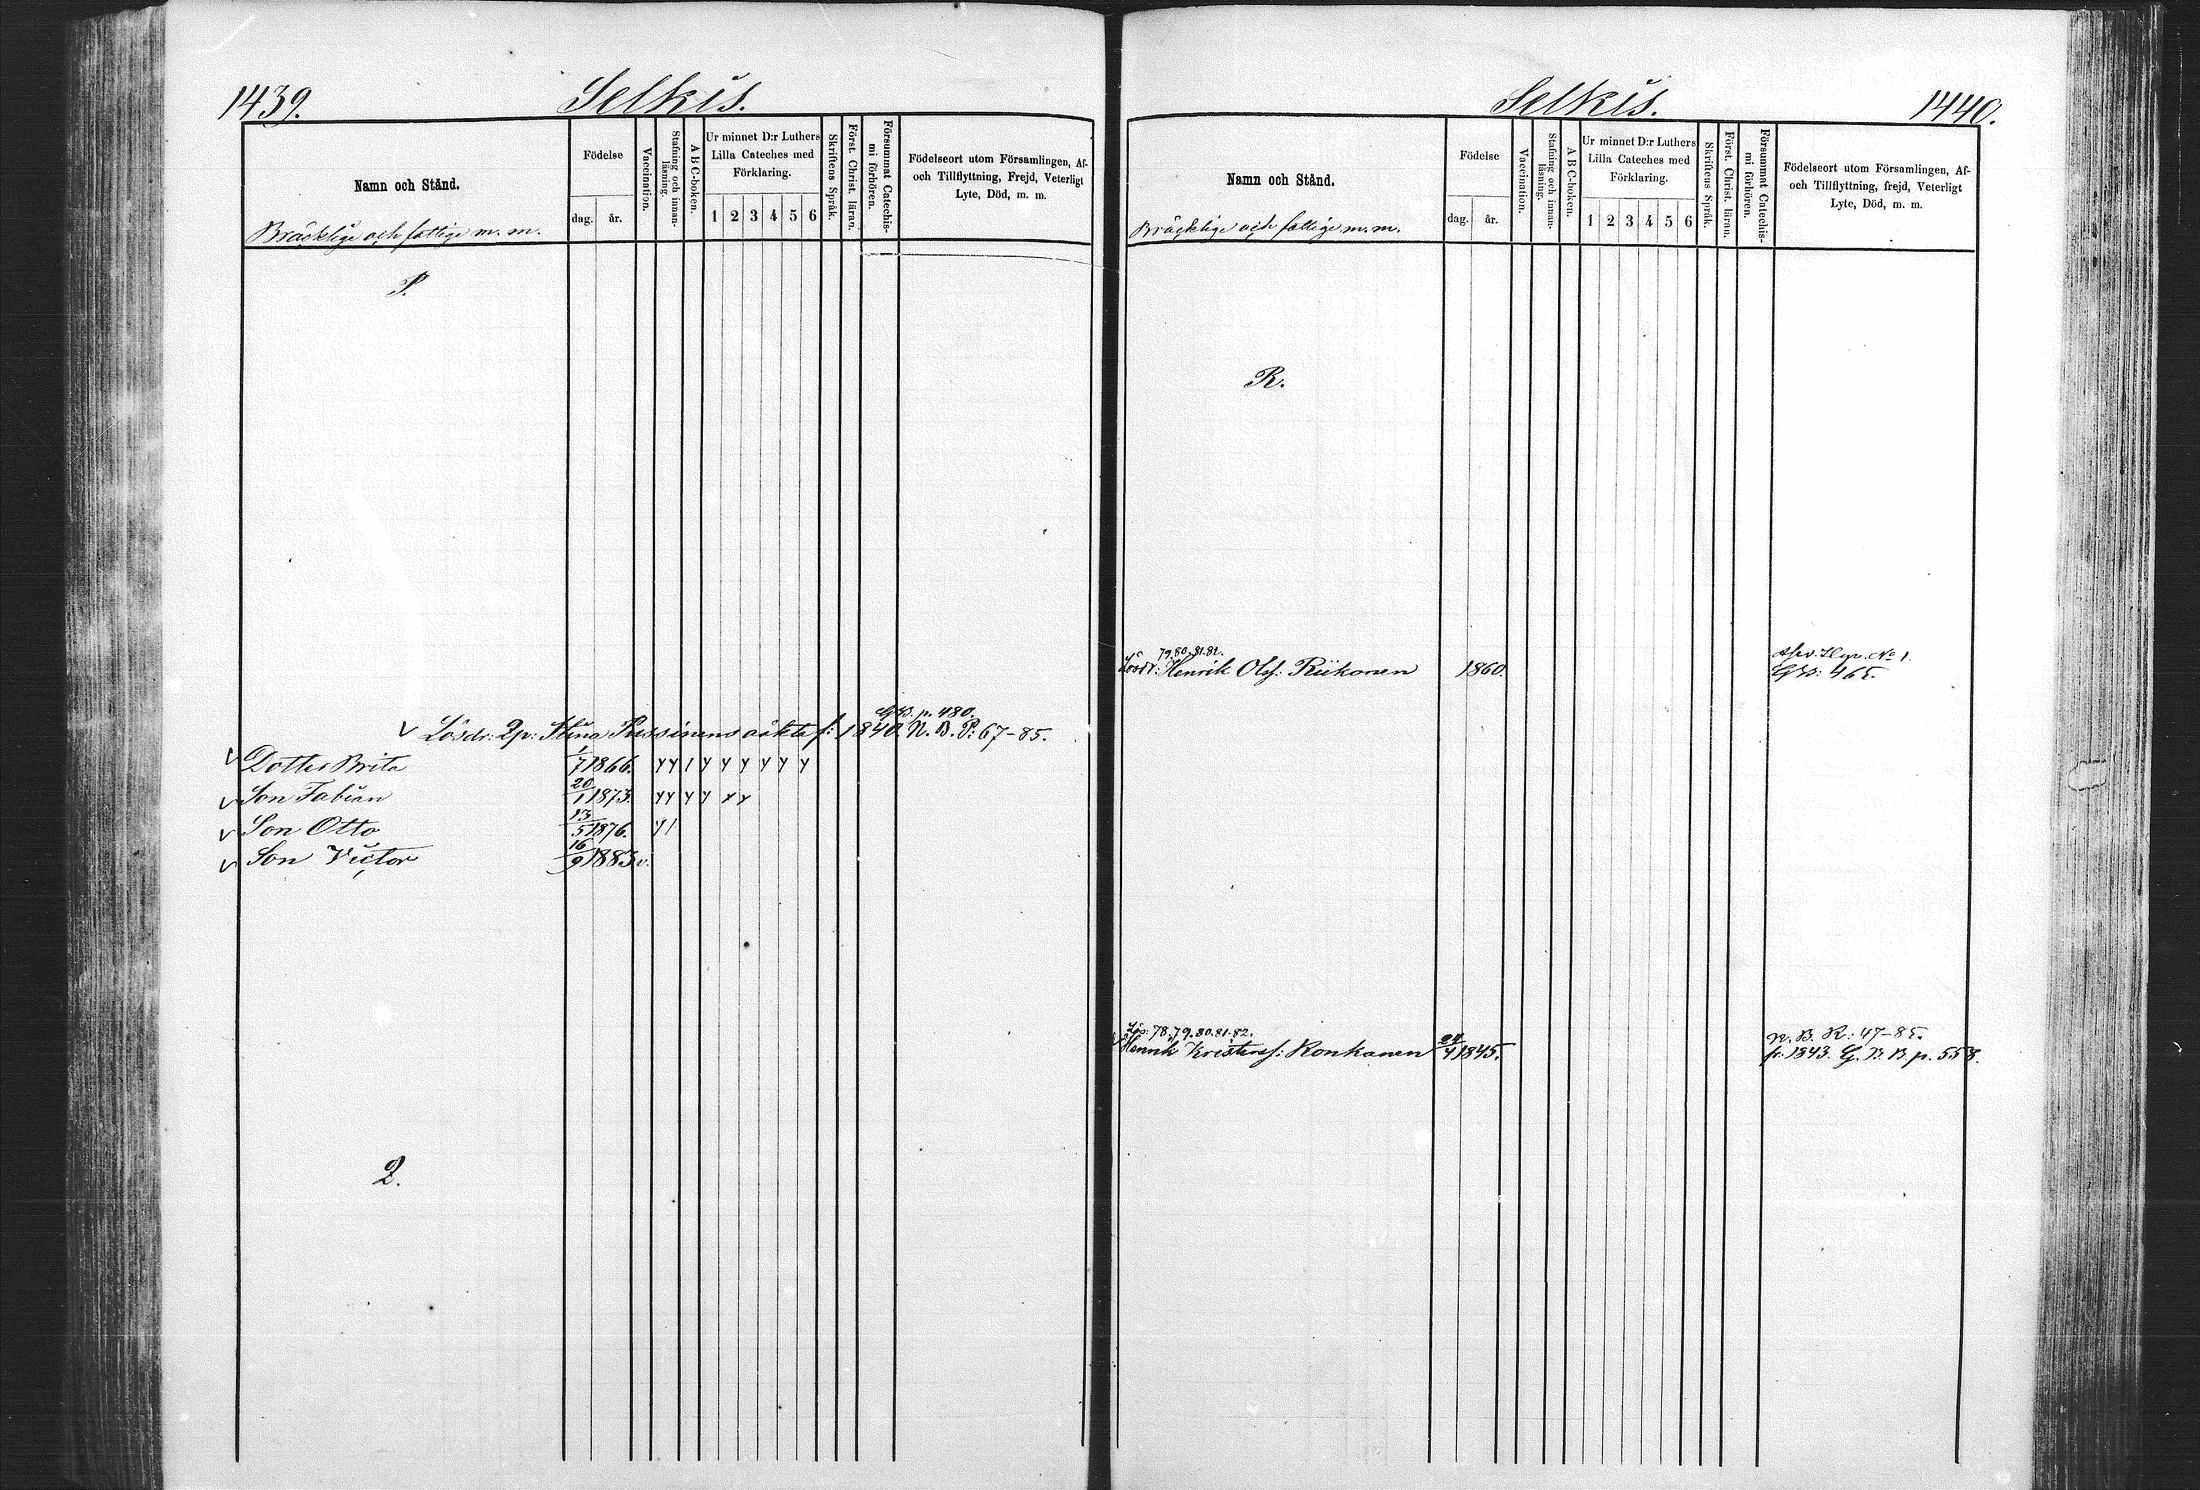 1439.
Selkis.
Namn och Stånd.
Bräcklige och fattige m. m.
Födelse
dag. år.
Vaccination.
Stafning och innanläsning.
A B C-boken.
Ur minnet D:r Luthers
Lilla Cateches med
Förklaring.
1 2 3 4 5 6
Skriftens Språk.
Först. Christ. läran.
Försummat Catechismi förhören.
Födelseort utom Församlingen, Af-
och Tillflyttning, Frejd, Veterligt
Lyte, Död, m. m.
P.
GB. p. 480.
Lösdr: Qp: Stina Pussinens oäkta f: 1840. N. B. P: 67-85.
Dotter Brita 1/7 1866.
Son Fabian 20/1 1873.
Son Otto 13/5 1876.
Son Victor 16/9 1883 v.
Q.
Selkis.
1440.
Namn och Stånd.
Bräcklige och fattige m. m.
Födelse
dag. år.
Vaccination.
Stafning och innanläsning.
A B C-boken.
Ur minnet D:r Luthers
Lilla Cateches med
Förklaring.
1 2 3 4 5 6
Skriftens Språk.
Först. Christ. läran.
Försummat Catechismi förhören.
Födelseort utom Församlingen, Af-
och Tillflyttning, frejd, Veterligt
Lyte, Död, m. m.
R.
79. 80. 81. 82. No 1.
Lösdr: Henrik Olsf: Riikonen 1860. GB: 465.
Lös: 78. 79. 80. 81. 82. N. B. R: 47-85.
Henrik Kristersf: Ronkanen 24/4 1845. fr. 1843. G. B. B p. 553.